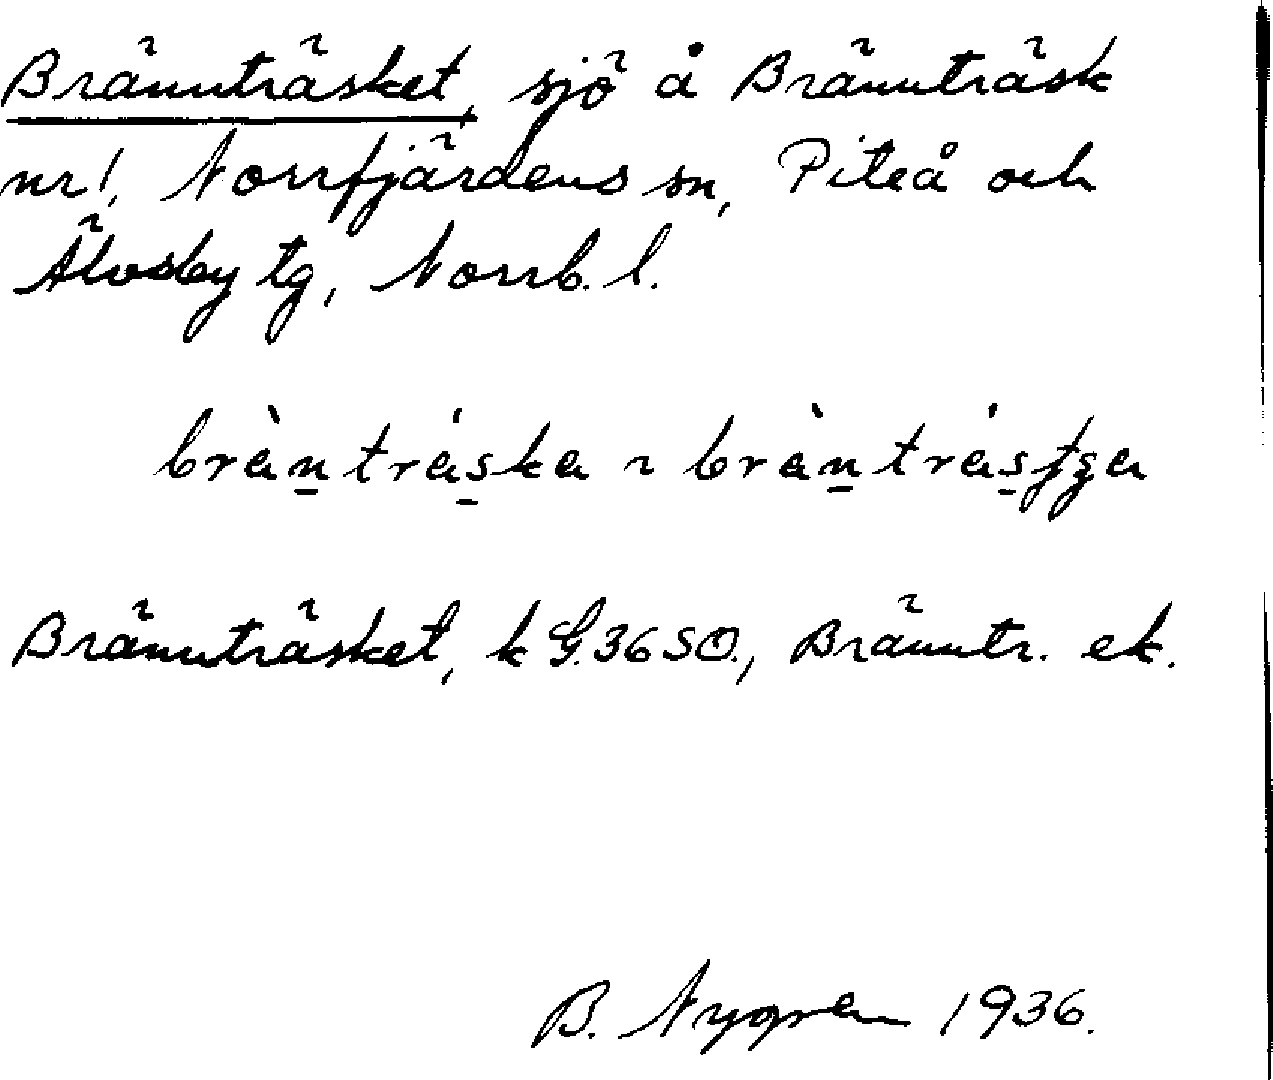 Brännträsket, sjö å Brännträsk
nr 1, Norrfjärdens sn, Piteå och
Älvsby tg, Norrb. l.
brànträska ~ brànträsʃʒa
Brännträsket, k G.36 SO., Bränntr. ek.
B. Nygren 1936.